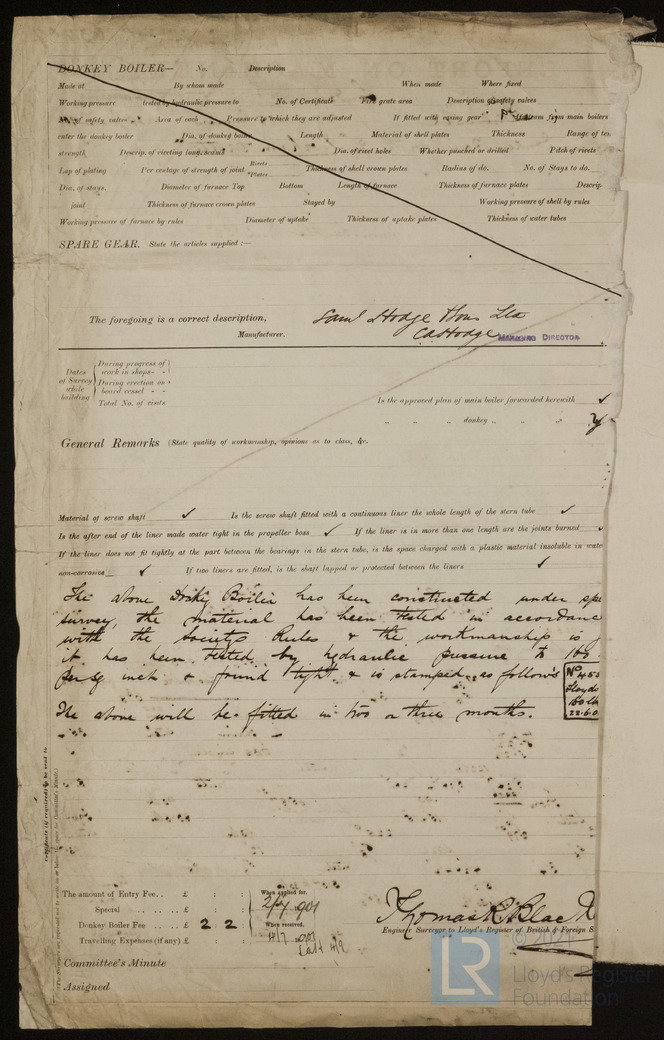 DONKEY BOILER— No. Description
Made at By whom made When made Where fixed
Working pressure tested by hydraulic pressure to No. of Certificate Fire grate area Description of Safety valves
No. of safety valves Area of each Pressure to which they are adjusted If fitted with easing gear If steam from main boilers
enter the donkey boiler Dia. of donkey boiler Length Material of shell plates Thickness Range of tens
strength Descrip. of riveting long. seams Dia. of rivet holes Whether punched or drilled Pitch of rivets
Lap of plating Per centage of strength of joint Rivets Plates Thickness of shell crown plates Radius of do. No. of Stays to do.
Dia. of stays. Diameter of furnace Top Bottom Length of furnace Thickness of furnace plates Descrip.
joint Thickness of furnace crown plates Stayed by Working pressure of shell by rules
Working pressure of furnace by rules Diameter of uptake Thickness of uptake plates Thickness of water tubes
SPARE GEAR. State the articles supplied :—
The foregoing is a correct description,
Saml Hodge & Sons Ltd
Manufacturer. Hodge MANAGING DIRECTOR
Dates at Survey while building
During progress of work in shops - -
During erection on board vessel - -
Total No. of visits
Is the approved plan of main boiler forwarded herewith ✓
" " " donkey " " "
General Remarks (State quality of workmanship, opinions as to class, &c.
Material of screw shaft ✓ Is the screw shaft fitted with a continuous liner the whole length of the stern tube ✓
Is the after end of the liner made water tight in the propeller boss ✓ If the liner is in more than one length are the joints burned ✓
If the liner does not fit tightly at the part between the bearings in the stern tube, is the space charged with a plastic material insoluble in water
non-corrosive ✓ If two liners are fitted, is the shaft lapped or protected between the liners ✓
The above Donkey Boiler has been constructed under spe
survey, the material has been tested in accordance
with the Society's Rules & the workmanship is g
it has been tested by hydraulic pressure to 160
per sq inch & found tight & is stamped as follows
No 453
Lloyds
160 lb
22.6.0
The above will be fitted in two or three months.
Certificate (if required) to be sent to
The amount of Entry Fee.. £ : : When applied for,
Special .. .. .. .. £ : : 2/7 1901
Donkey Boiler Fee .. .. £ 2 2 : When received,
Travelling Expenses (if any) £ : : 4/7 1901
Thomas R. Blac
Engineer Surveyor to Lloyd's Register of British & Foreign S
Committee's Minute
Assigned
LR
© 2021
Lloyd's Register
Foundation